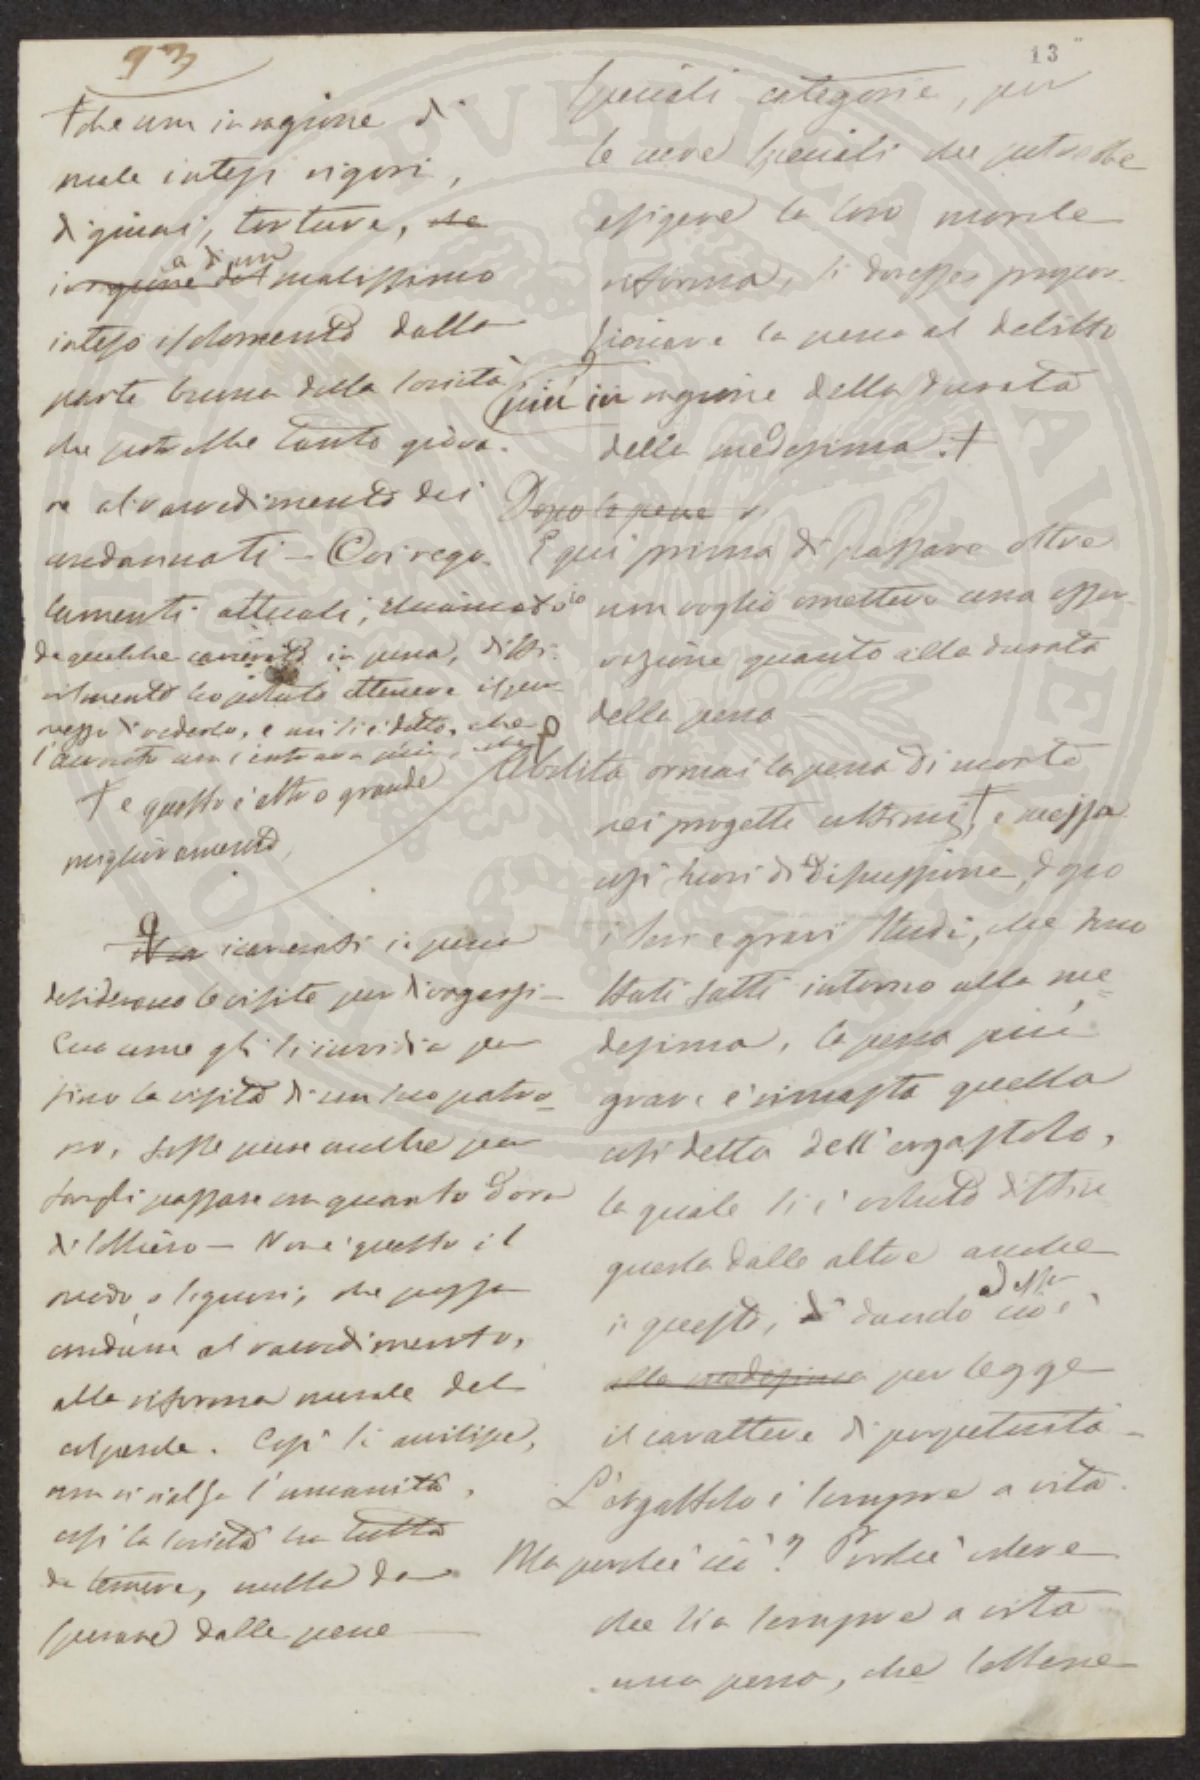 93
13
† che non in ragione di
male intesi rigori,
digiuni, torture, che
in ragione del a di un malissimo
inteso isolamento dalla
parte buona della società
che potrebbe tanto giova-
re al ravvedimento dei
condannati — Coi rego-
lamenti attuali, io
da qualche carcerato in pena, diffi-
cilmente ho potuto ottenere il per-
messo di vederlo, e mi si è detto, che
l'avvocato non c'entrava più,
† e questo è altro grande
miglioramento,
I carcerati in pena
desiderano le visite per divagarsi —
Ecco come gli si invidia per
fino la visita di un suo patro-
no, fosse pure anche per
fargli passare un quarto d'ora
di sollievo — Non è questo il
modo o signori, che possa
condurre al ravvedimento,
alla riforma morale del
colpevole. Così si avvilisce,
non si rialza l'umanità,
così la società ha tutto
da temere, nulla da
sperare dalle pene
speciali categorie, per
le cure speciali che potrebbe
esigere la loro morale
riforma, si dovesse propor-
zionare la pena al delitto
più in ragione della durata
della medesima. †
Dopo le pene
E qui prima di passare oltre
non voglio omettere una osser-
vazione quanto alla durata
della pena —
Abolita ormai la pena di morte
nei progetti ultimi †, e messa
così fuori di discussione, dopo
i seri e gravi studi, che sono
stati fatti intorno alla me-
desima, la pena più
grave è rimasta quella
così detta dell'ergastolo,
la quale si è voluto distin
guerla dalle altre anche
in questo, dando cioè ad essa
alla medesima per legge
il carattere di perpetuità —
L'ergastolo è sempre a vita.
Ma perché ciò? Perché volere
che sia sempre a vita
una pena, che sebbene